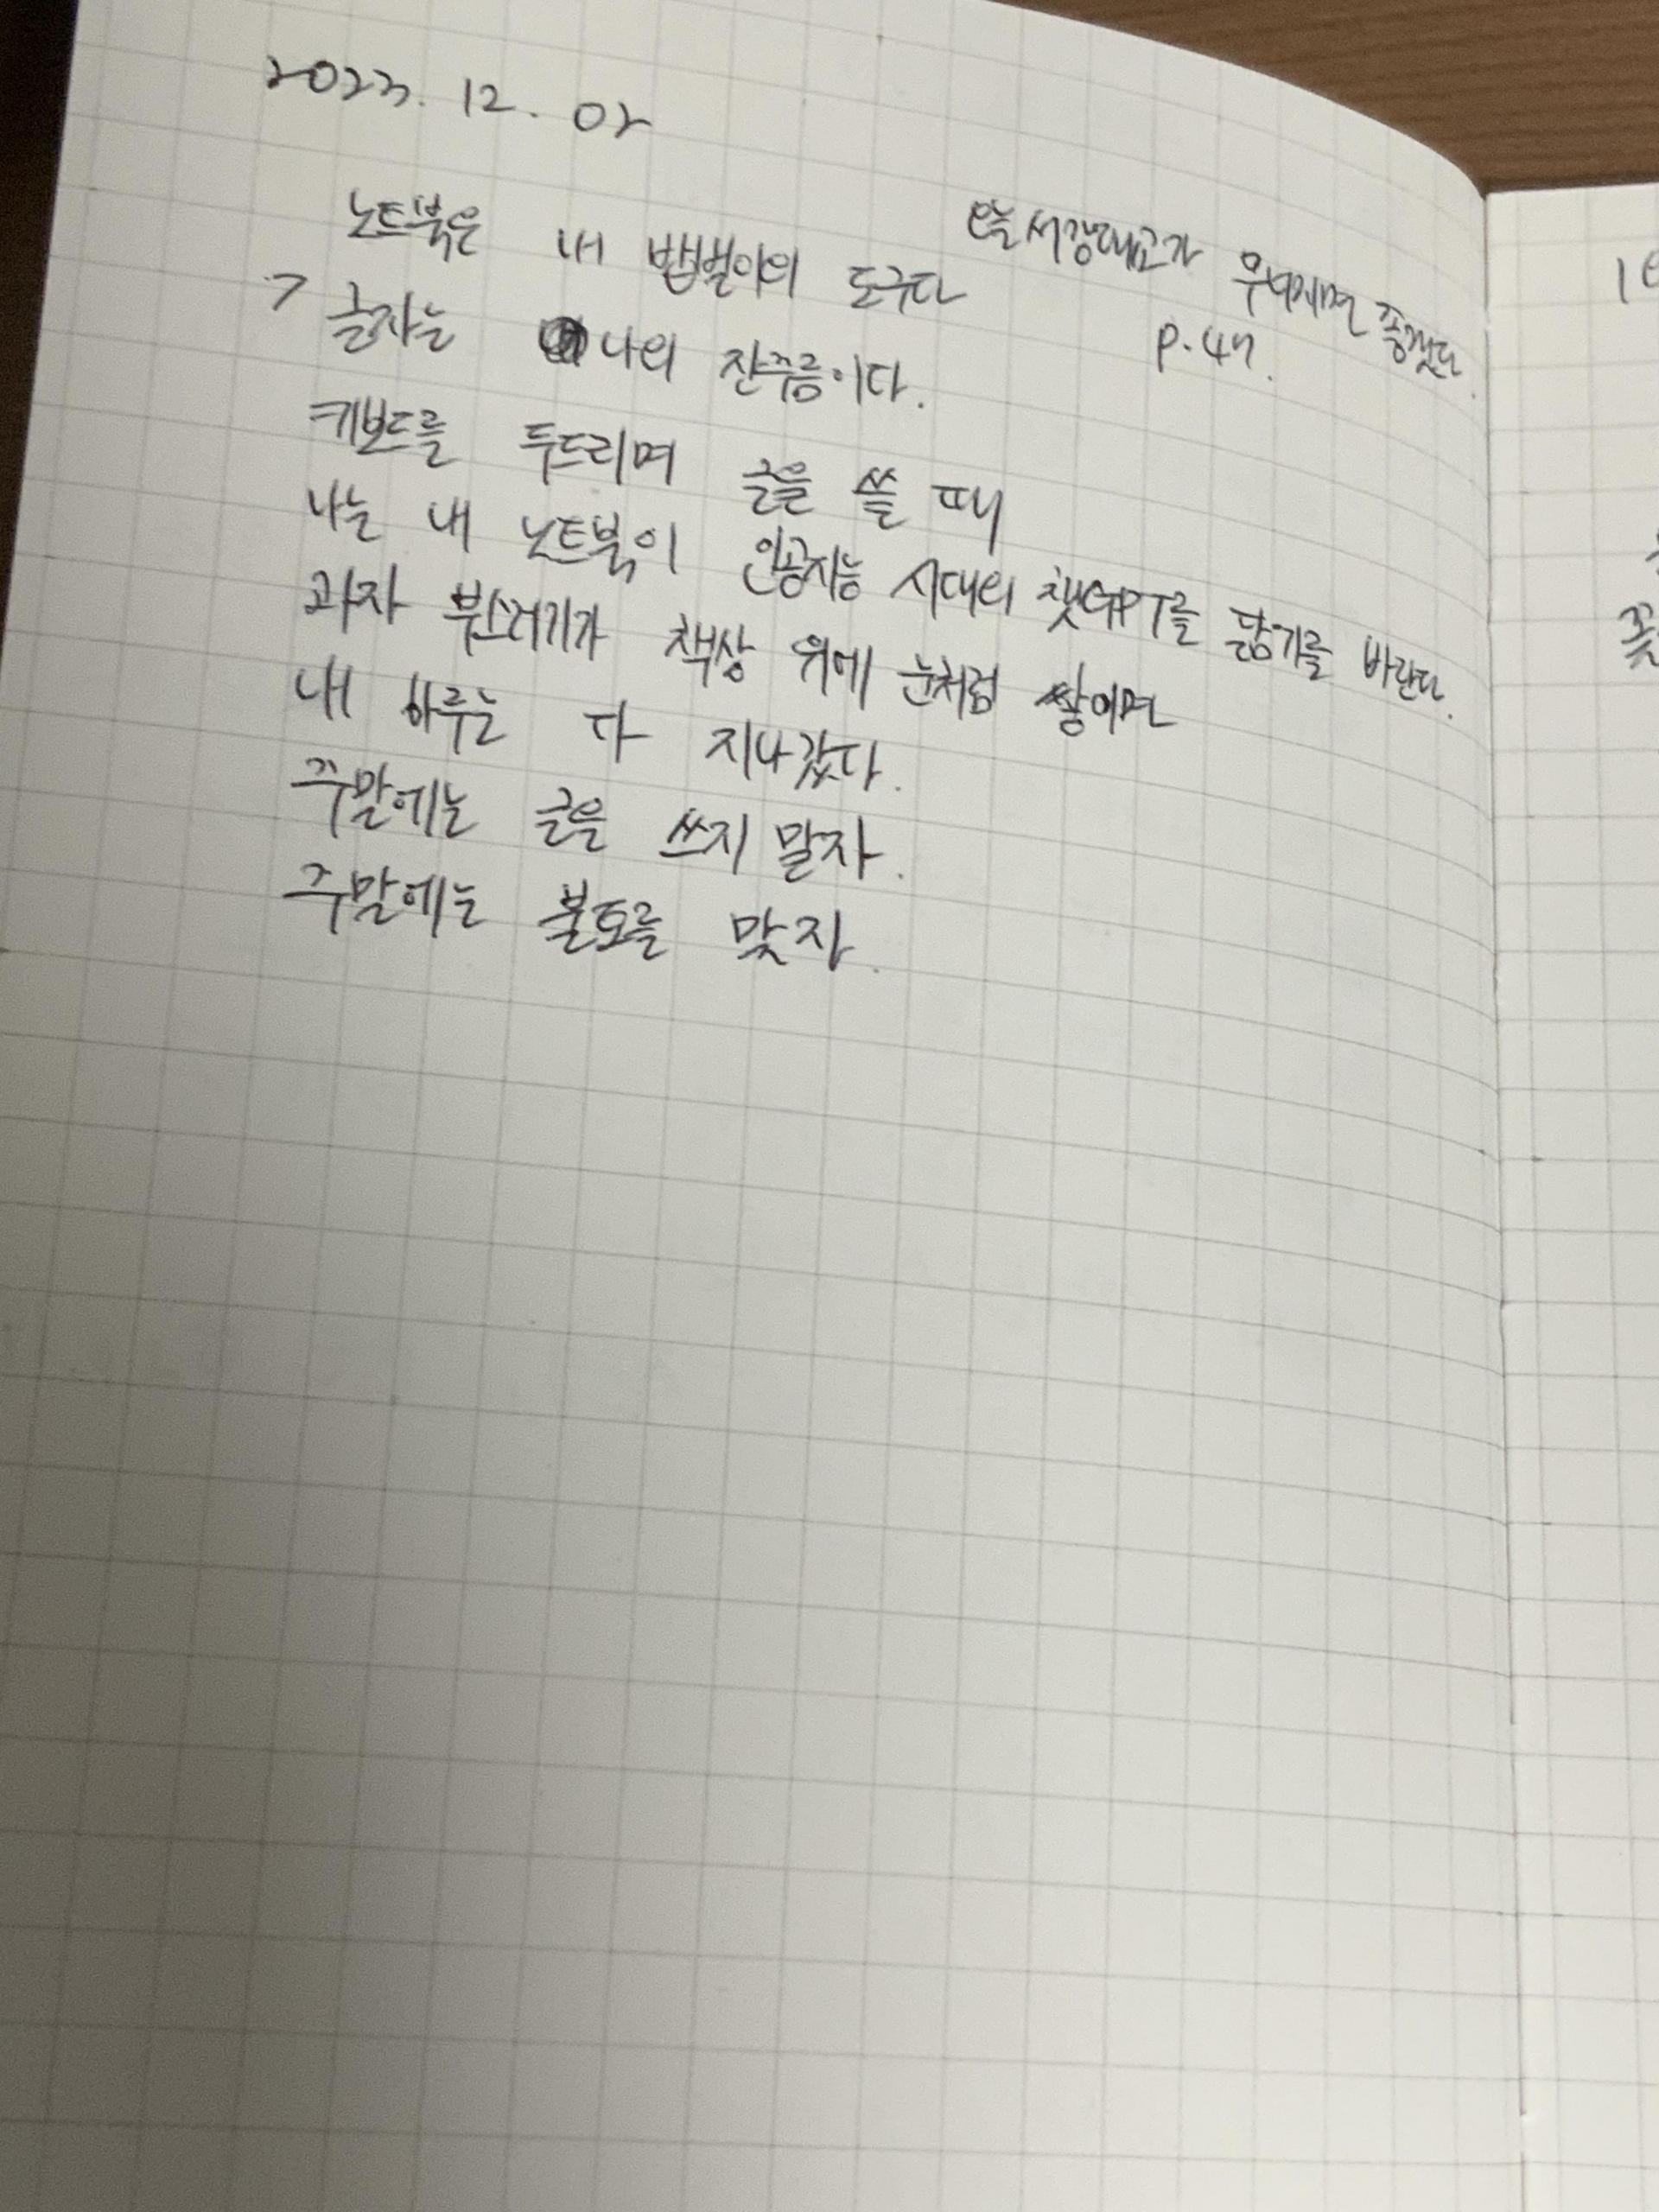 2023. 12. 02
오늘 서강대교가 무너지면 좋겠다.
p.47.
노트북은 내 밥벌이의 도구다
> 글자는 나의 잔주름이다.
키보드를 두드리며 글을 쓸 때
나는 내 노트북이 인공지능 시대의 챗GPT를 닮기를 바란다.
과자 부스러기가 책상 위에 눈처럼 쌓이면
내 하루는 다 지나갔다.
주말에는 글을 쓰지 말자.
주말에는 불도를 맞자.